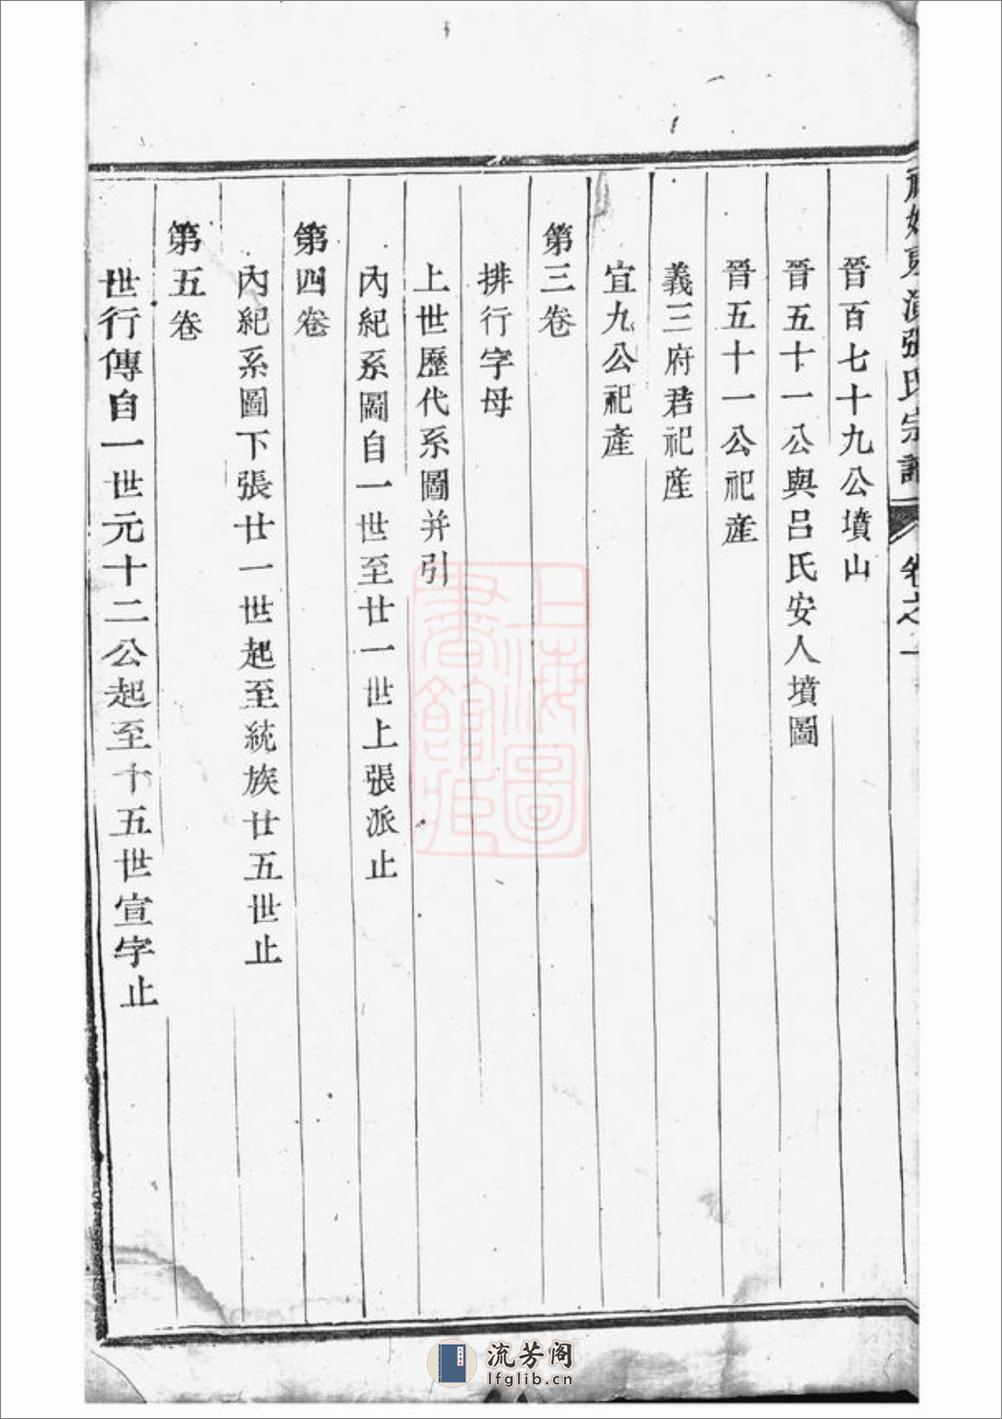 張氏宗譜 卷之一
晉百七十九公墳山
晉五十一公與呂氏安人墳圖
晉五十一公祀產
義三府君祀產
宜九公祀產
第三卷
排行字母
上世歷代系圖并引
內紀系圖自一世至廿一世上張派止
第四卷
內紀系圖下張廿一世起至統族廿五世止
第五卷
世行傳自一世元十二公起至十五世宣字止
上海圖
書館藏
流芳阁
lfglib.cn